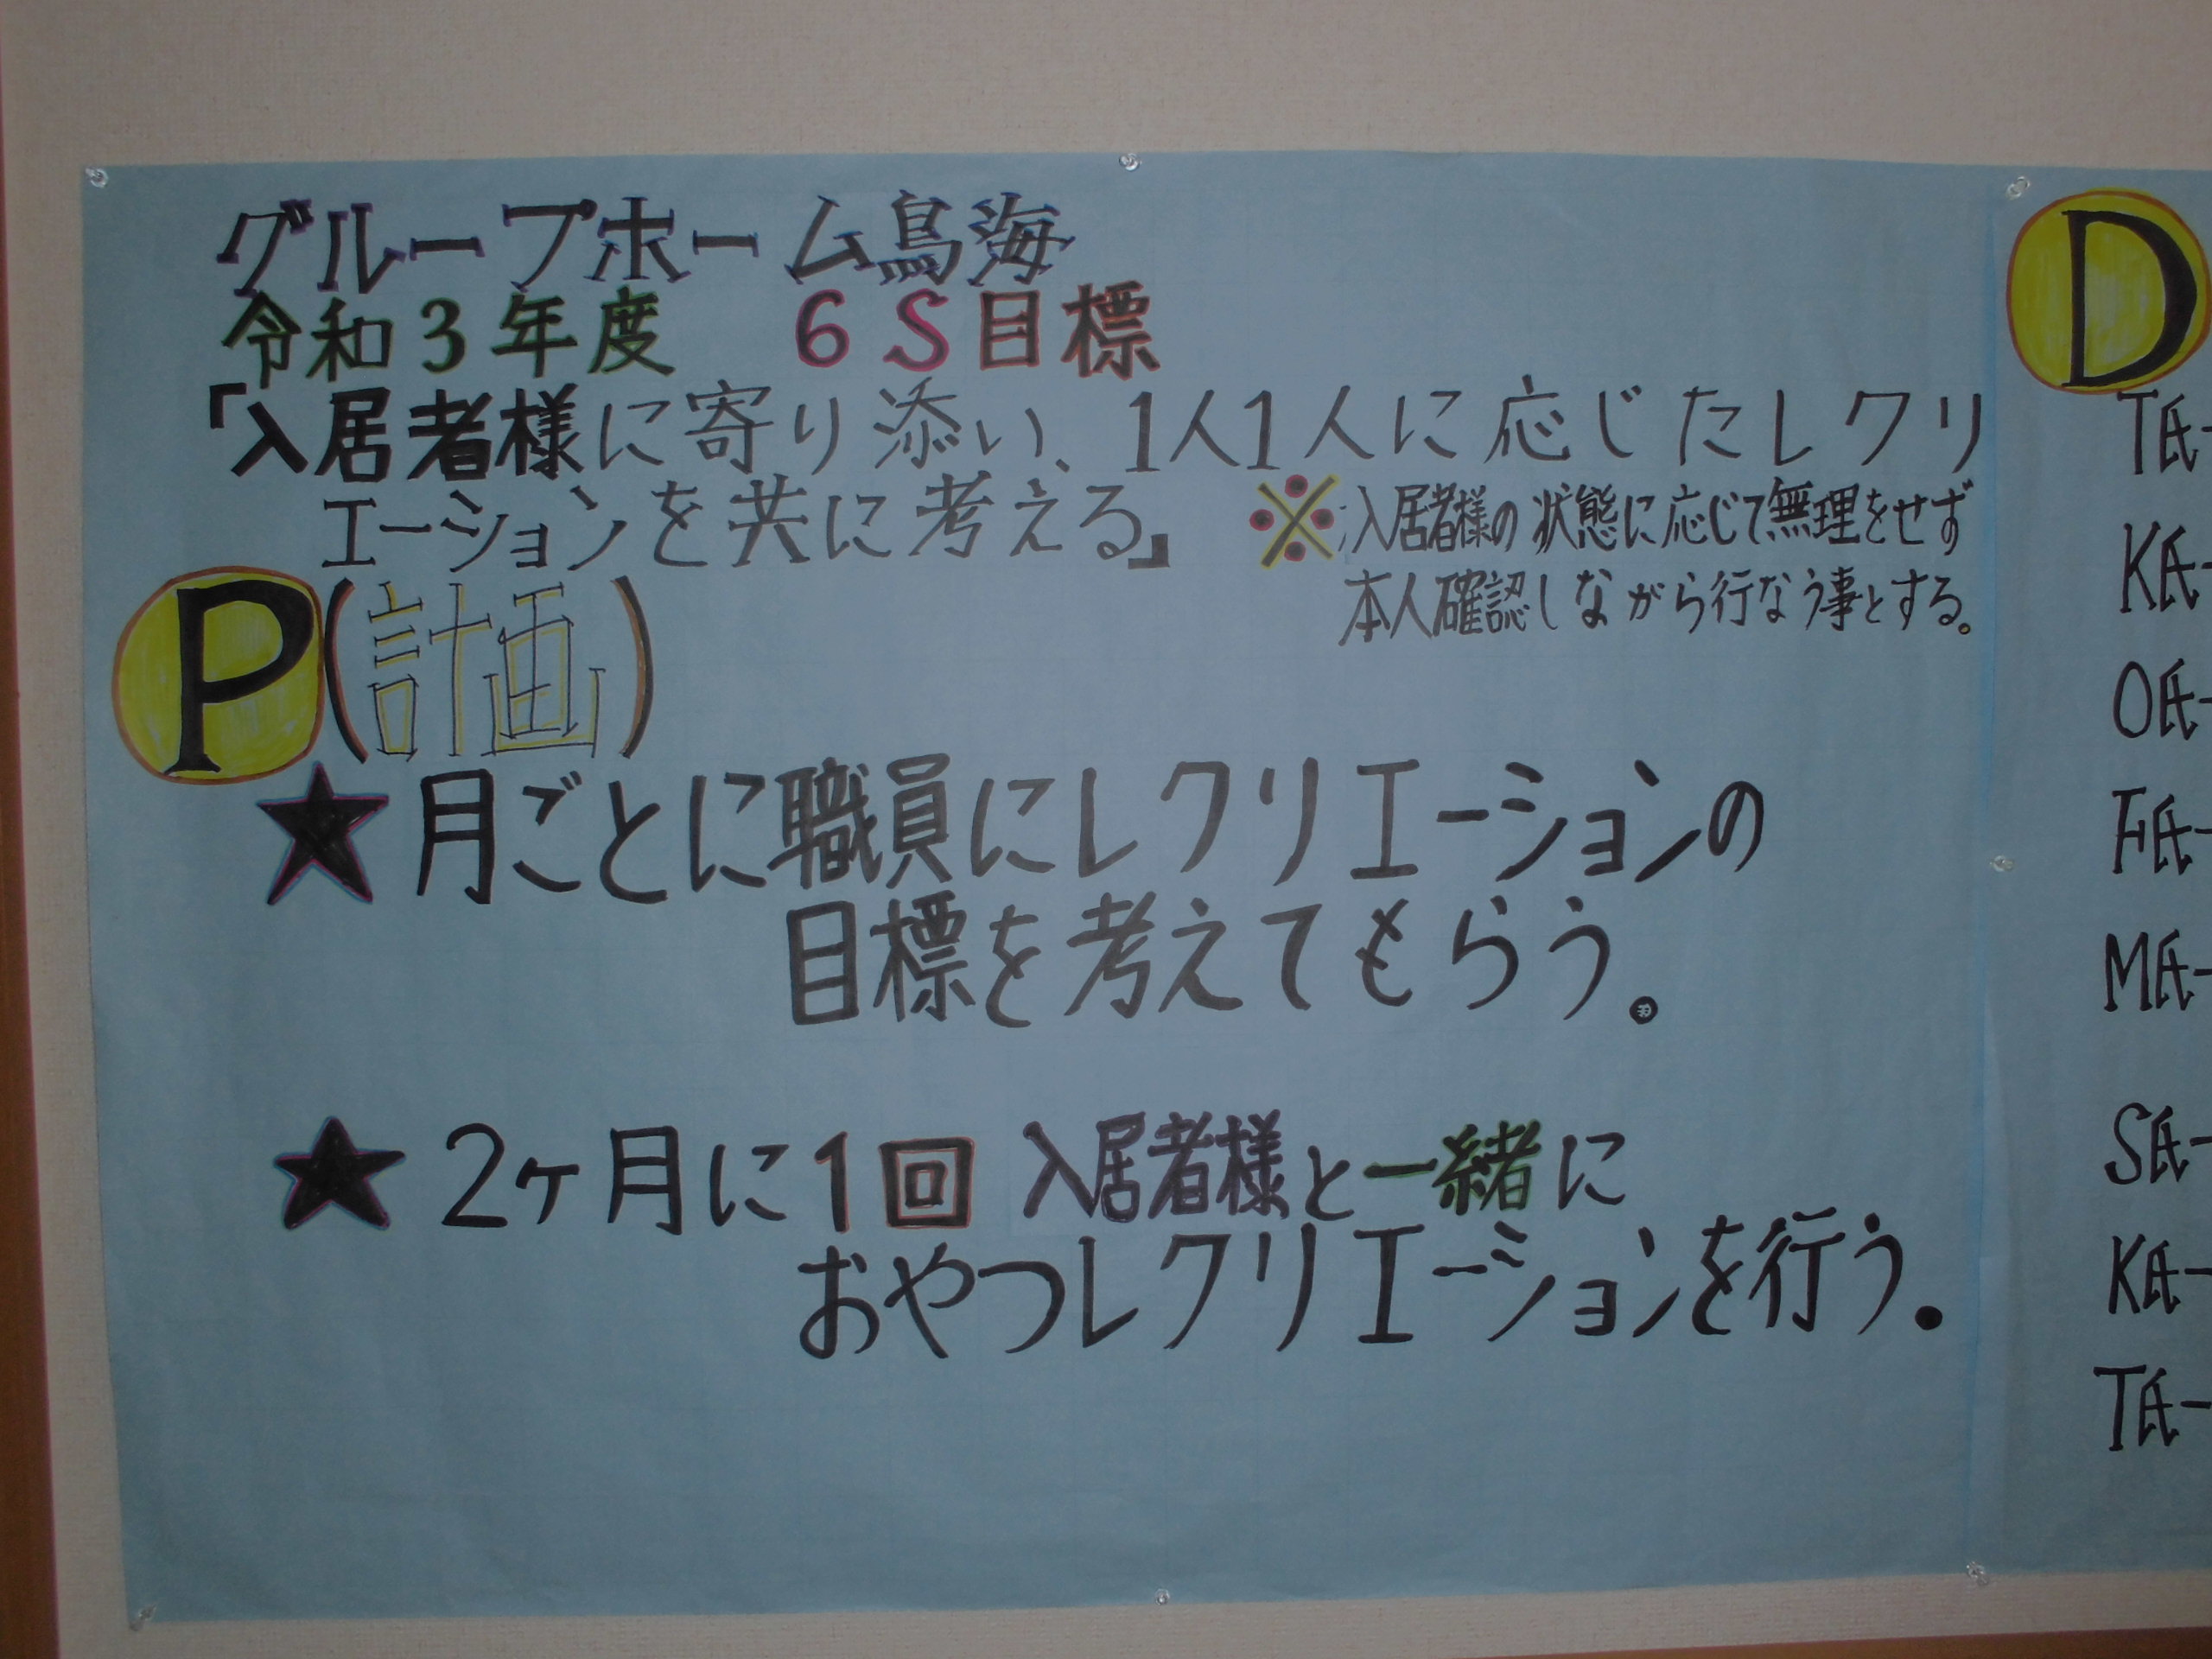 グループホーム鳥海
令和3年度　6S目標
「入居者様に寄り添い、1人1人に応じたレクリ
エーションを共に考える」
※入居者様の状態に応じて、無理をせず
本人確認しながら行なう事とする。
P(計画)
★月ごとに職員にレクリエーションの
目標を考えてもらう。
★2ヶ月に1回 入居者様と一緒に
おやつレクリエーションを行う。
D
T氏-
K氏-
O氏-
F氏-
M氏-
S氏-
K氏-
T氏-